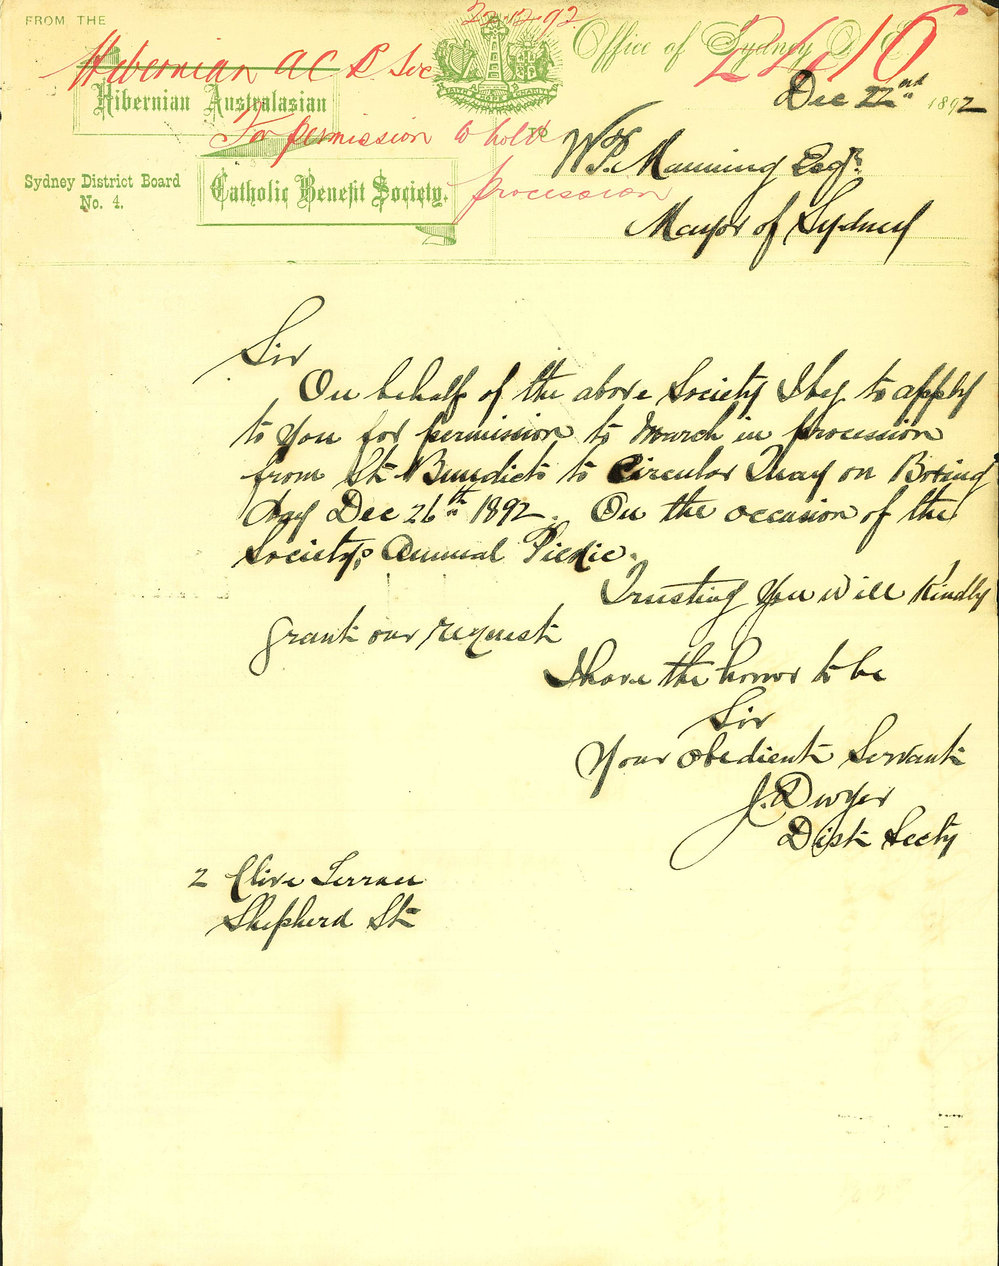 FROM THE
22.12.92
Hibernian A C B Soc
Office of Sydney D.
2416
Hibernian Australasian
Dec 22nd 1892
For permission to hold
To
W. P. Manning Esqr.
Sydney District Board
No. 4.
Catholic Benefit Society.
procession
Mayor of Sydney
Sir
On behalf of the above Society I beg to apply
to you for permission to march in procession
from St Benedicts to Circular Quay on Boxing
day Dec 26th 1892. On the occasion of the
Societys Annual Picnic.
Trusting you will Kindly
grant our request
I have the honor to be
Sir
Your obedient Servant
J. Dwyer
Dist Secty
2 Clive Terrace
Shepherd St